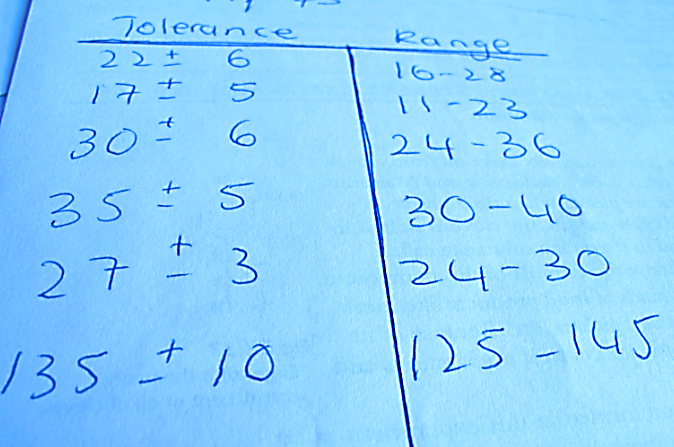 Tolerance Range
22 ± 6 16-28
17 ± 5 11-23
30 ± 6 24-36
35 ± 5 30-40
27 ± 3 24-30
135 ± 10 125-145